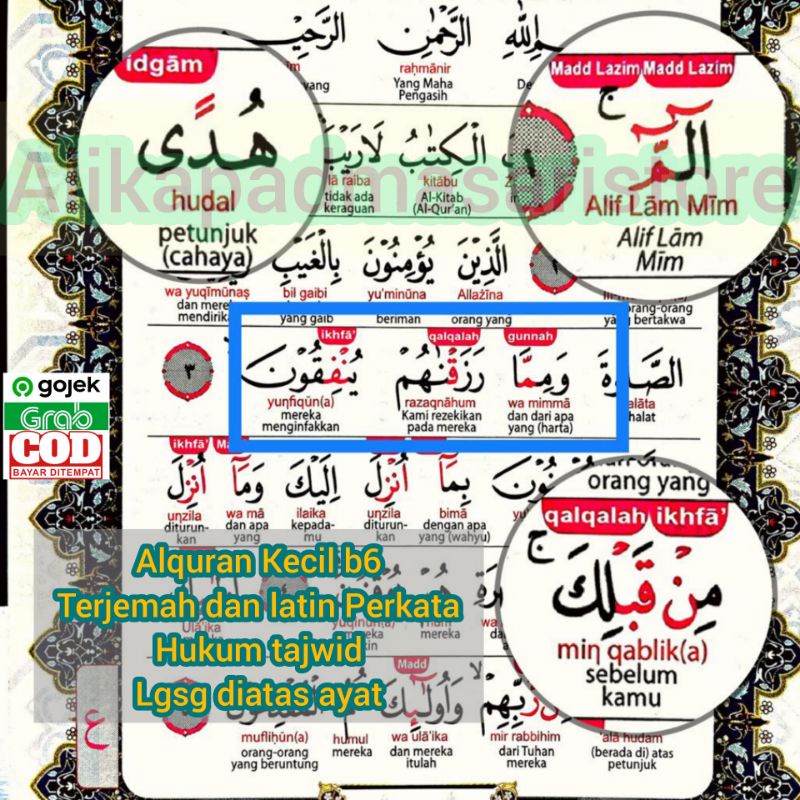 الرَّحْمٰنِ الرَّحِيْمِ
raḥmānir
Yang Maha
Pengasih
idgām
هُدًى
hudal
petunjuk
(cahaya)
Madd Lazim Madd Lazim
الٓمّٓ
Alif Lām Mīm
Alif Lām
Mīm
الْكِتٰبُ لَارَيْبَ
kitābu
lā raiba
Al-Kitab
(Al-Qur'an)
tidak ada
keraguan
الَّذِيْنَ يُؤْمِنُوْنَ بِالْغَيْبِ
Allażīna yu'minūna bil gaibi wa yuqīmūnaṣ
orang yang beriman yang gaib
orang-orang
yang bertakwa
gunnah qalqalah ikhfā'
الصَّلٰوةَ وَمِمَّا رَزَقْنٰهُمْ يُنْفِقُوْنَ ٣
wa mimmā razaqnāhum yuŋfiqūn(a)
dan dari apa
yang (harta)
Kami rezekikan
pada mereka
mereka
menginfakkan
gojek
Grab
COD
BAYAR DITEMPAT
ikhfā'
بِمَآ اُنْزِلَ اِلَيْكَ وَمَآ اُنْزِلَ
bimā uŋzila ilaika wa mā uŋzila
dengan apa
yang (wahyu)
diturun-
kan
kepada-
mu
dan apa
yang
diturun-
kan
orang yang
qalqalah ikhfā'
مِنْ قَبْلِكَ
miŋ qablik(a)
sebelum
kamu
Alquran Kecil b6
Terjemah dan latin Perkata
Hukum tajwid
Lgsg diatas ayat
Madd
رَّبِّهِمْ وَاُولٰۤىِٕكَ
'alā hudam mir rabbihim wa ulā'ika humul mufliḥūn(a)
(berada di) atas
petunjuk
dari Tuhan
mereka
dan mereka
itulah
mereka
orang-orang
yang beruntung
ع